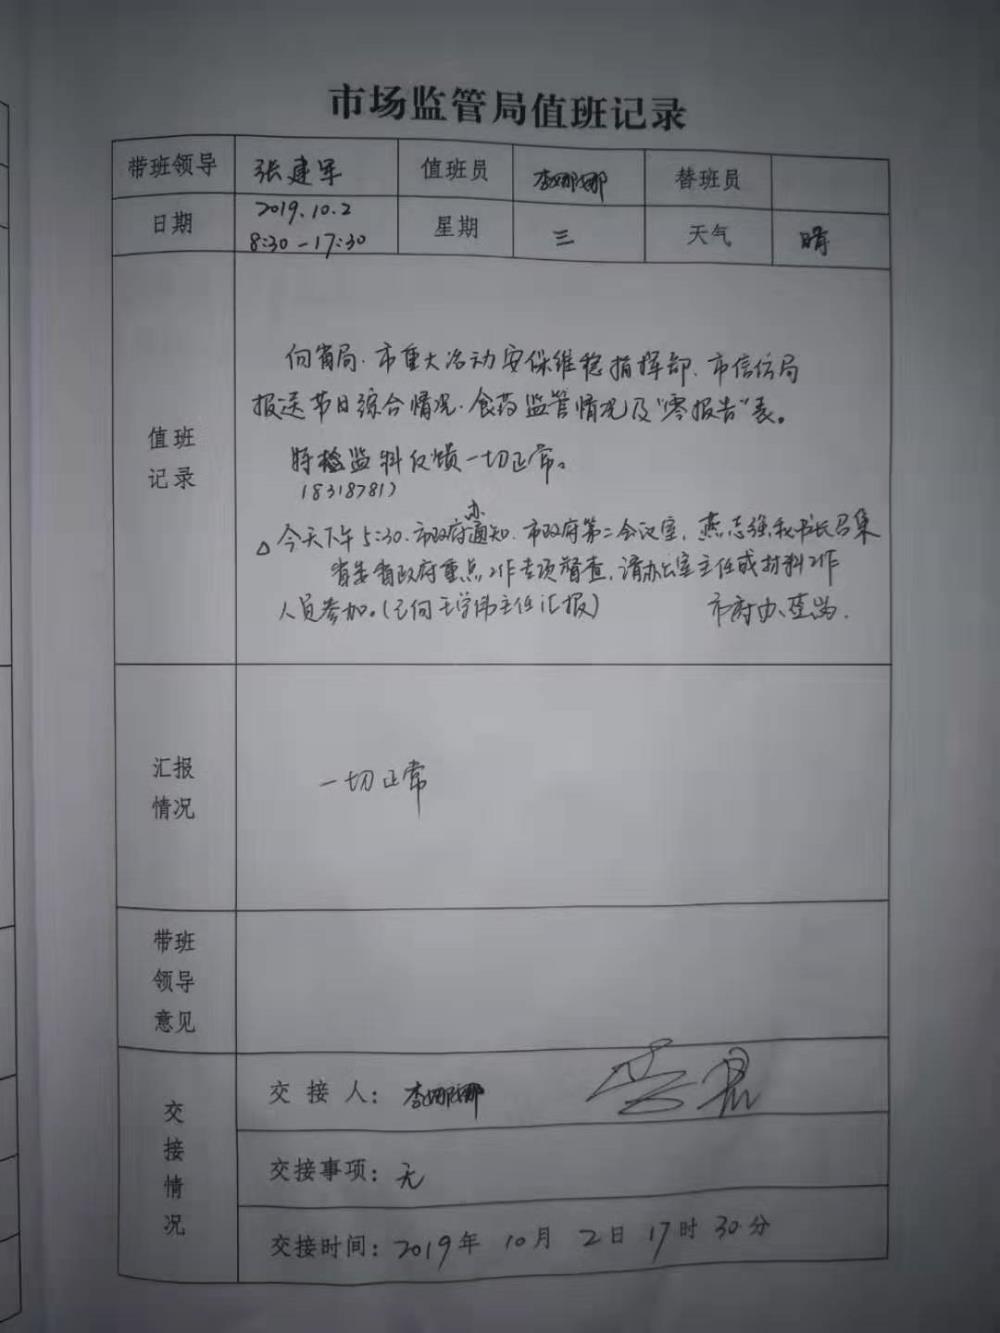 市场监管局值班记录
带班领导 张建军 值班员 李娜娜 替班员
日期 2019.10.2 星期 三 天气 晴
8:30-17:30
值班
记录
向省局.市重大活动安保维稳指挥部.市信访局
报送节日综合情况.食药监管情况及“零报告”表。
特检监科反馈一切正常。
(8318781)
办
△今天下午5:30.市政府通知.市政府第二会议室,燕志强秘书长召集
省委省政府重点工作专项督查,请办公室主任或材料工作
人员参加。(已向王学伟主任汇报) 市府办
汇报
情况
一切正常
带班
领导
意见
交接情况
交接人: 李娜娜
交接事项: 无
交接时间: 2019年 10月 2日 17时 30分